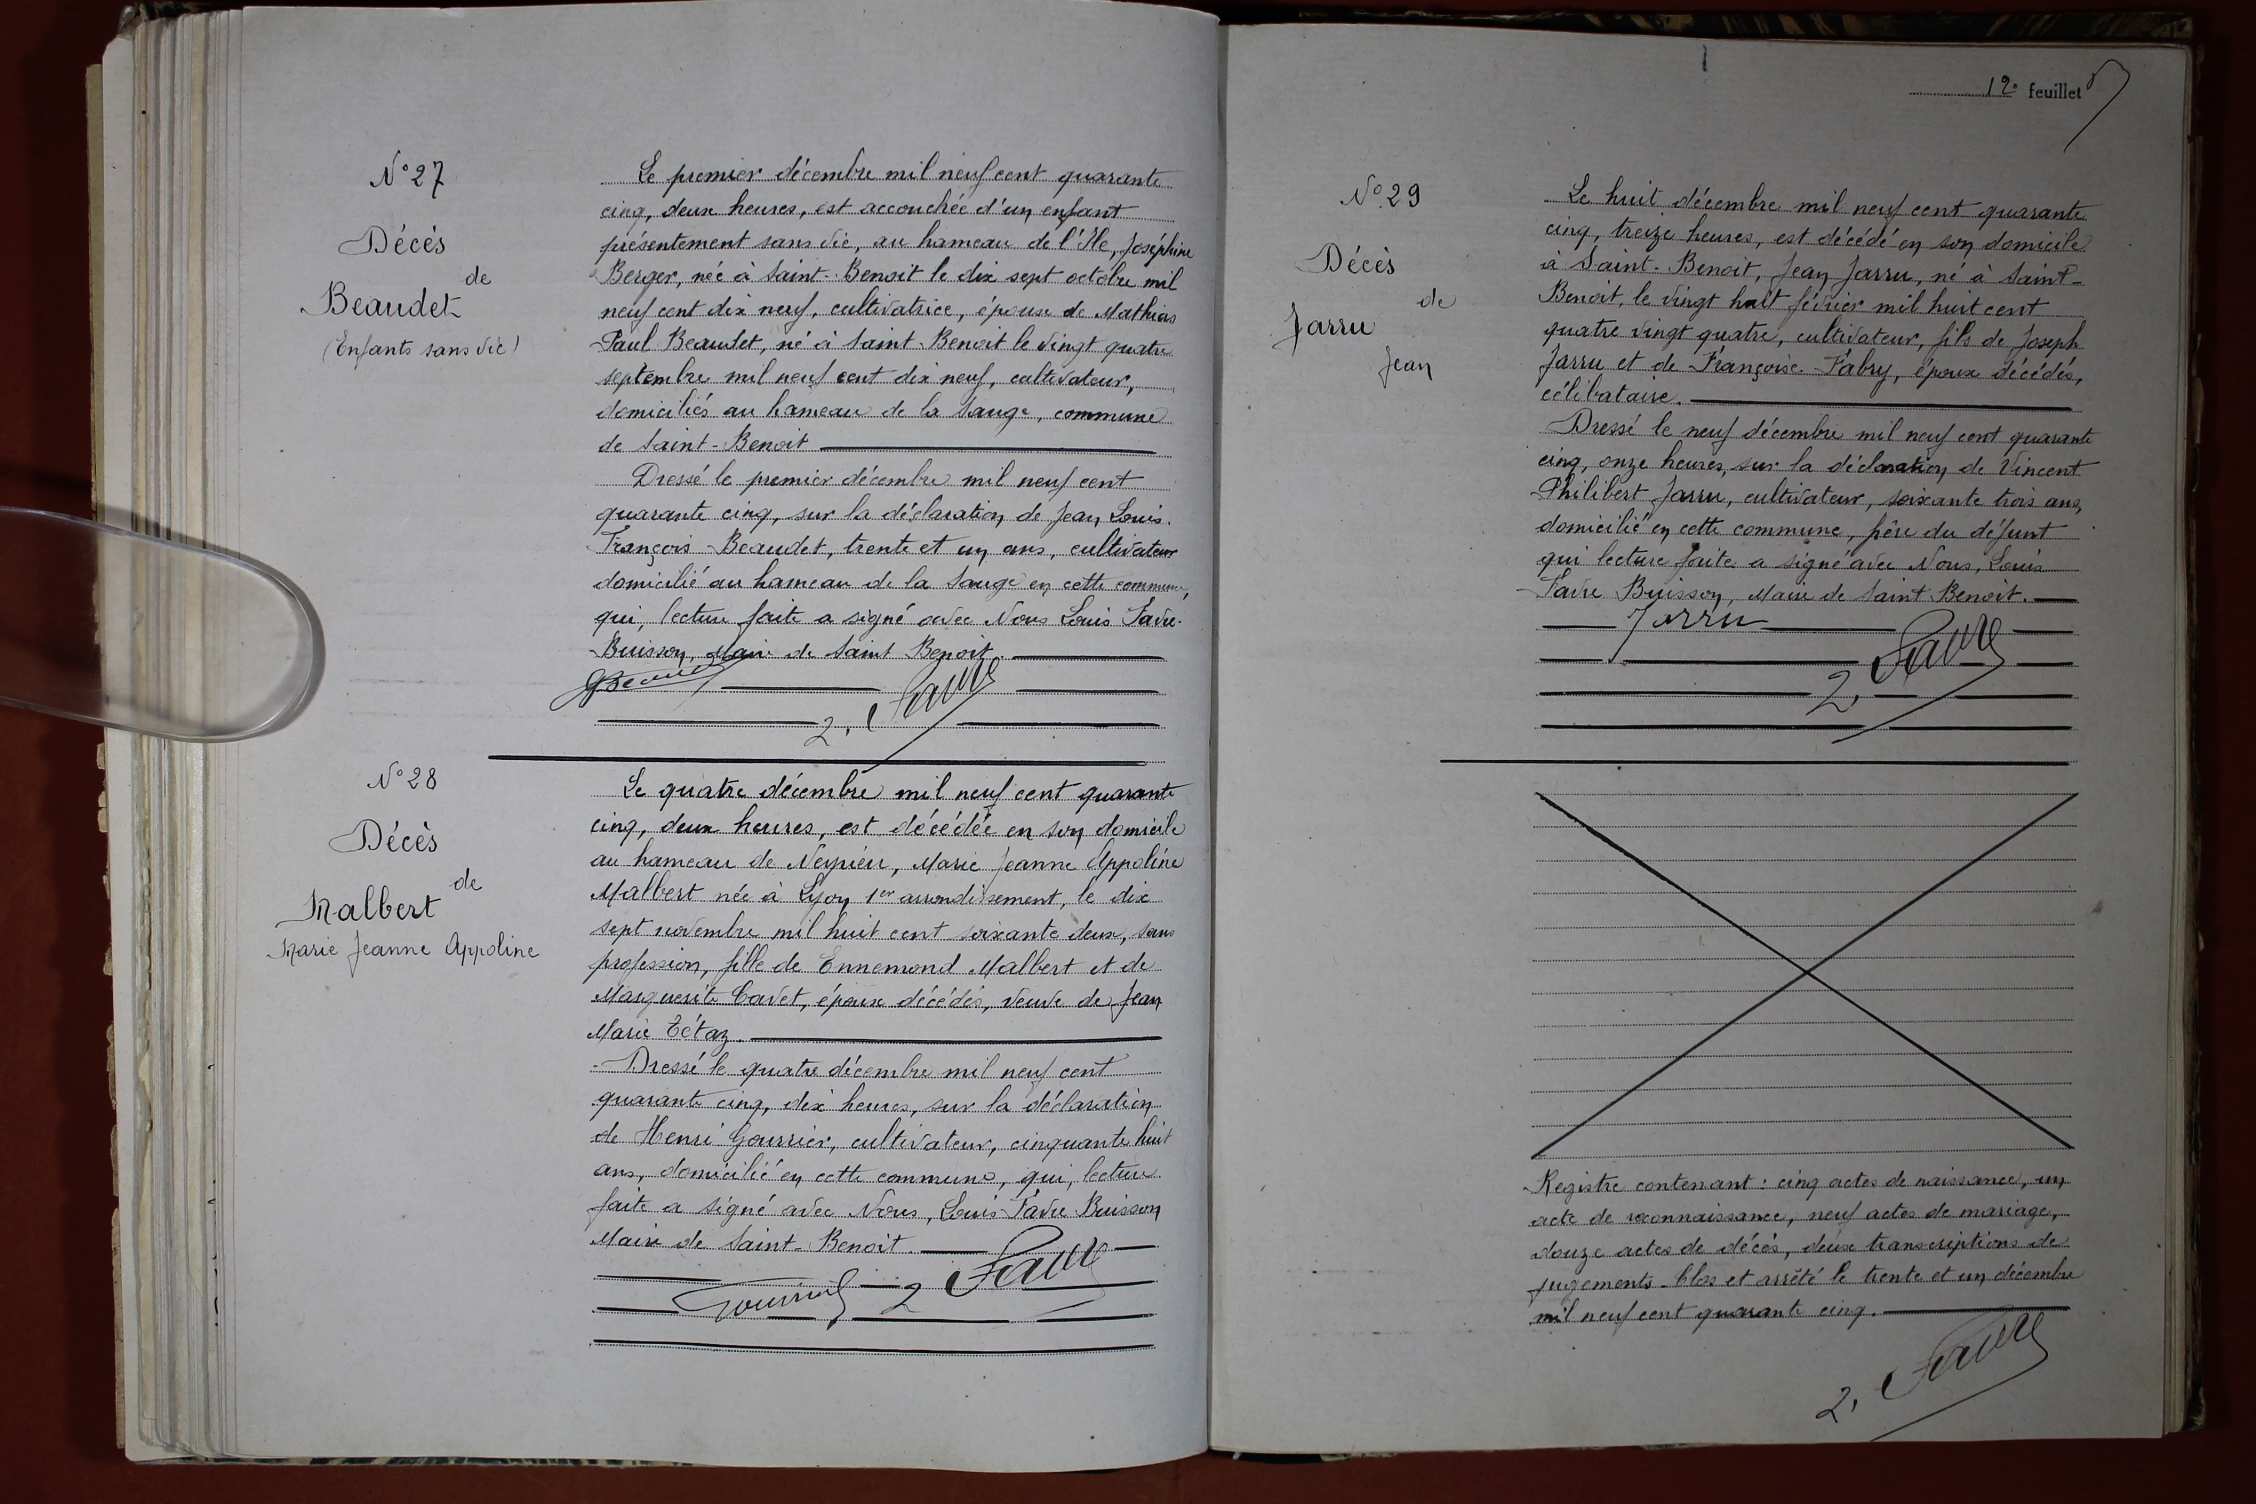 N° 27
Décès
de
Beaudet
(Enfants sans vie)
Le premier décembre mil neuf cent quarante
cinq, deux heures, est accouchée d'un enfant
présentement sans vie, au hameau de l'Ile, Joséphine
Berger, née à Saint-Benoit le dix sept octobre mil
neuf cent dix neuf, cultivatrice, épouse de Mathias
Paul Beaudet, né à Saint-Benoit le vingt quatre
septembre mil neuf cent dix neuf, cultivateur,
domiciliés au hameau de la Sauge, commune
de Saint-Benoit
Dressé le premier décembre mil neuf cent
quarante cinq, sur la déclaration de Jean Louis
François Beaudet, trente et un ans, cultivateur
domicilié au hameau de la Sauge en cette commune,
qui, lecture faite a signé avec Nous Louis Favre-
Buisson, Maire de Saint Benoit.
2. Favre
N° 28
Décès
de
Malbert
Marie Jeanne Appoline
Le quatre décembre mil neuf cent quarante
cinq, deux heures, est décédée en son domicile
au hameau de Neyrieu, Marie Jeanne Appoline
Malbert née à Lyon 1er arrondissement, le dix
sept novembre mil huit cent soixante deux, sans
profession, fille de Ennemond Malbert et de
Marguerite Cavet, époux décédés, veuve de Jean
Marie Tétaz.
Dressé le quatre décembre mil neuf cent
quarante cinq, dix heures, sur la déclaration
de Henri Gourrier, cultivateur, cinquante huit
ans, domicilié en cette commune, qui, lecture
faite a signé avec Nous, Louis Favre Buisson
Maire de Saint-Benoit.
Gourrier 2 Favre
12e feuillet
N° 29
Décès
de
Jarru
Jean
Le huit décembre mil neuf cent quarante
cinq, treize heures, est décédé en son domicile
à Saint-Benoit, Jean Jarru, né à Saint-
Benoit, le vingt huit février mil huit cent
quatre vingt quatre, cultivateur, fils de Joseph
Jarru et de Françoise Fabry, époux décédés,
célibataire.
Dressé le neuf décembre mil neuf cent quarante
cinq, onze heures, sur la déclaration de Vincent
Philibert Jarru, cultivateur, soixante trois ans,
domicilié en cette commune, frère du défunt
qui lecture faite a signé avec Nous, Louis
Favre Buisson, Maire de Saint Benoit.
Jarru
2. Favre
Registre contenant : cinq actes de naissance, un
acte de reconnaissance, neuf actes de mariage,
douze actes de décès, deux transcriptions de
jugements. Clos et arrêté le trente et un décembre
mil neuf cent quarante cinq.
2. Favre